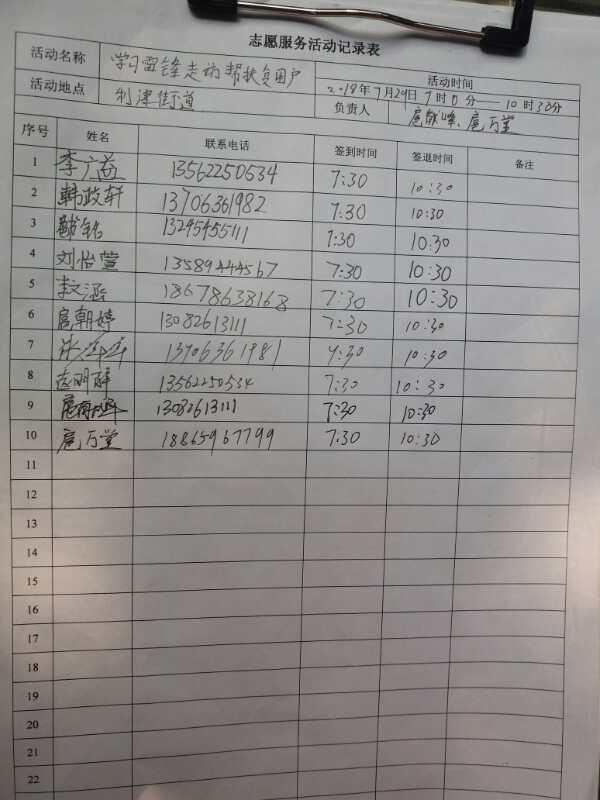 志愿服务活动记录表
活动名称 学习雷锋走访帮扶贫困户 活动时间
2018年7月29日7时0分——10时30分
活动地点 利津街道 负责人 扈献峰、扈万堂
序号 姓名 联系电话 签到时间 签退时间 备注
1 李广益 13562250534 7:30 10:30
2 韩政轩 13706361982 7:30 10:30
3 13295455111 7:30 10:30
4 刘怡萱 13589444567 7:30 10:30
5 李文涵 18678638168 7:30 10:30
6 扈朝婷 13082613111 7:30 10:30
7 13706361981 7:30 10:30
8 13562250534 7:30 10:30
9 13082613111 7:30 10:30
10 扈万堂 18865967799 7:30 10:30
11
12
13
14
15
16
17
18
19
20
21
22